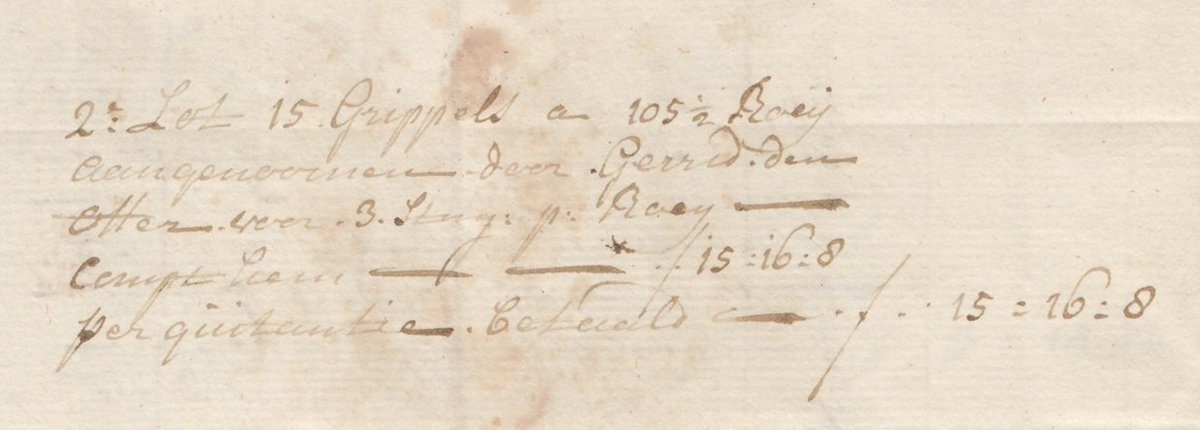 2: Lot 15 Grippels a 105 1/2 Roeij
aangenoomen door Gerrid den
Otter voor 3. Stuy: p: Roey —
Compt hem — — f 15:16:8
per quitantie betaald — f. 15:16:8